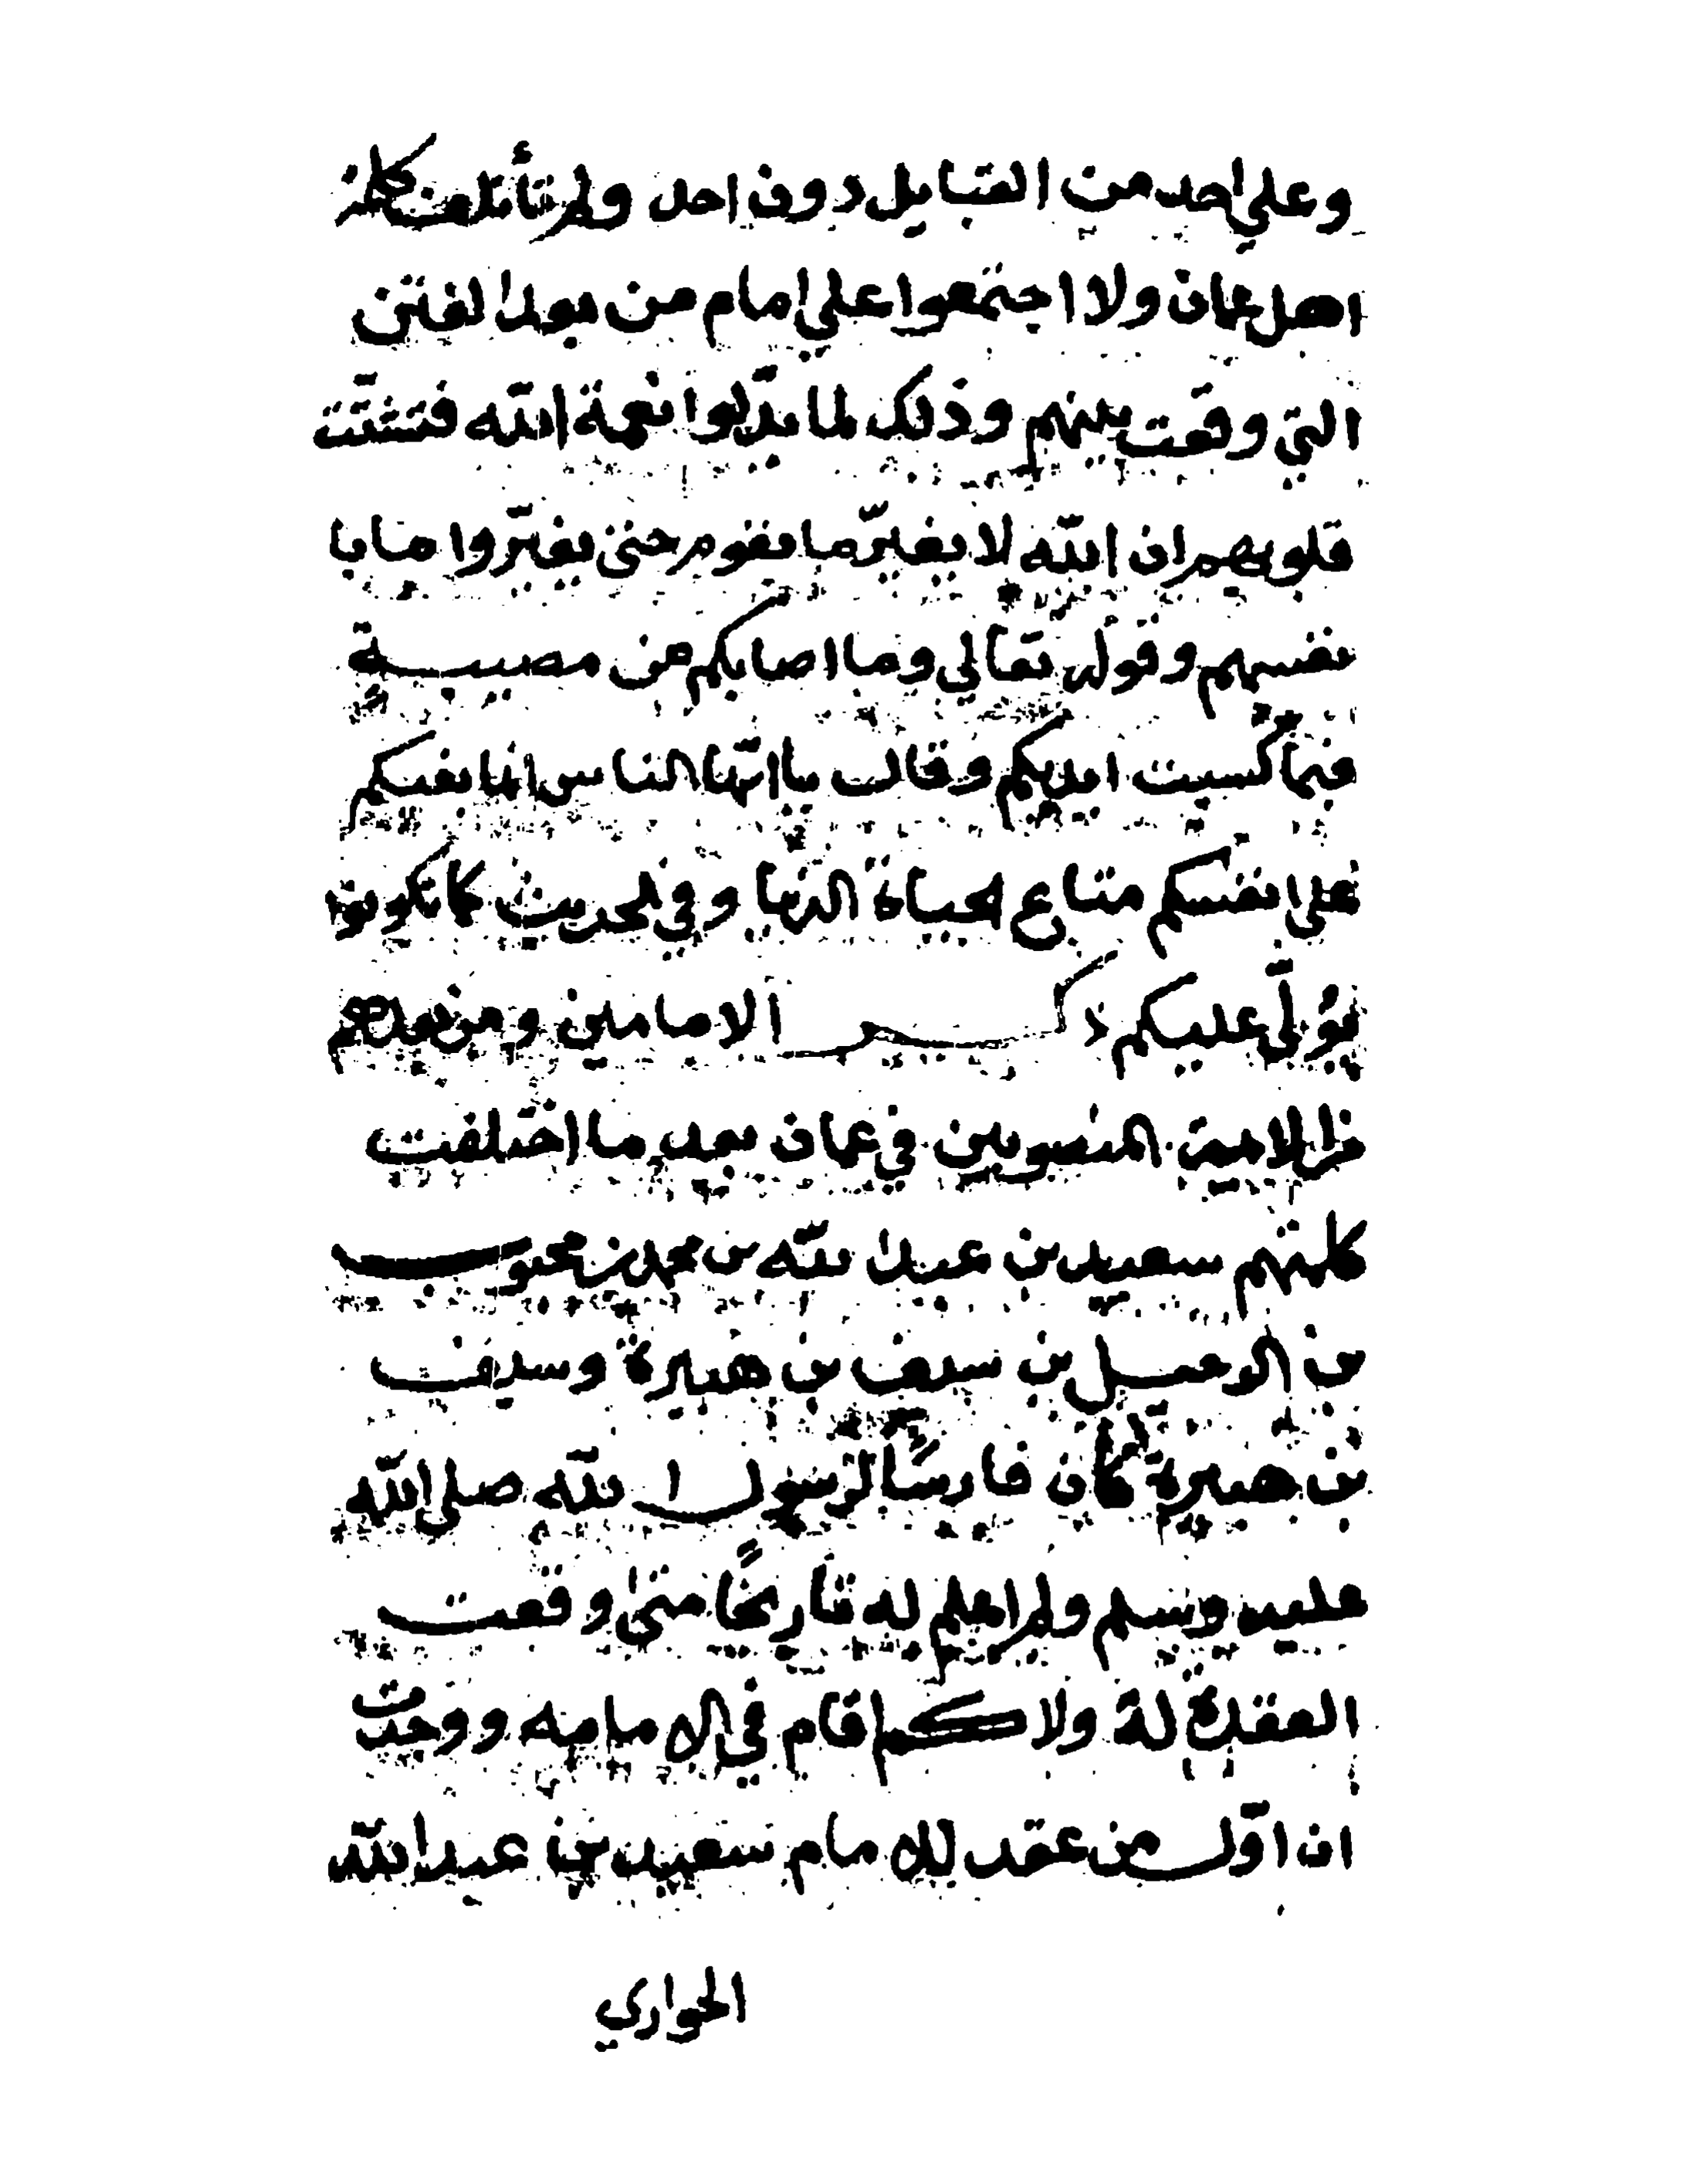 وعلي احد من القبايل دون احد ولم تأتلف كلمة
اهل عمان ولا اجتمعوا علي امام من بعد الفتن
التي وقعت بينهم وذلك لما بدّلوا نعمة الله فتشتّت
قلوبهم ان الله لا يغيّر ما بقوم حتى يغيّروا ما با
نفسهم وقوله تعالي وما اصابكم من مصيبـــة
فبما كسبت ايديكم وقال يا ايّها الناس انما بغيكم
على انفسكم متاع الحياة الدنيا وفي الحديث كما تكونون
يُولّى عليكم ذكــــر الامامين ومن بعدهم
من الايمة المنصوبين في عمان بعد ما اختلفت
كلمتهم سعيد بن عبد الله بن محمد بن محبوب
بن الرحيل بن سيف بن هبيرة وسيف
بن هبيرة كان فارسًا لرسول الله صلى الله
عليه وسلم ولم اعلم له تاريخًا متى وقعت
العقدة له ولا كم اقام في الامامه ووجدت
ان اوّل من عقد للامام سعيد بن عبد الله
الحواري